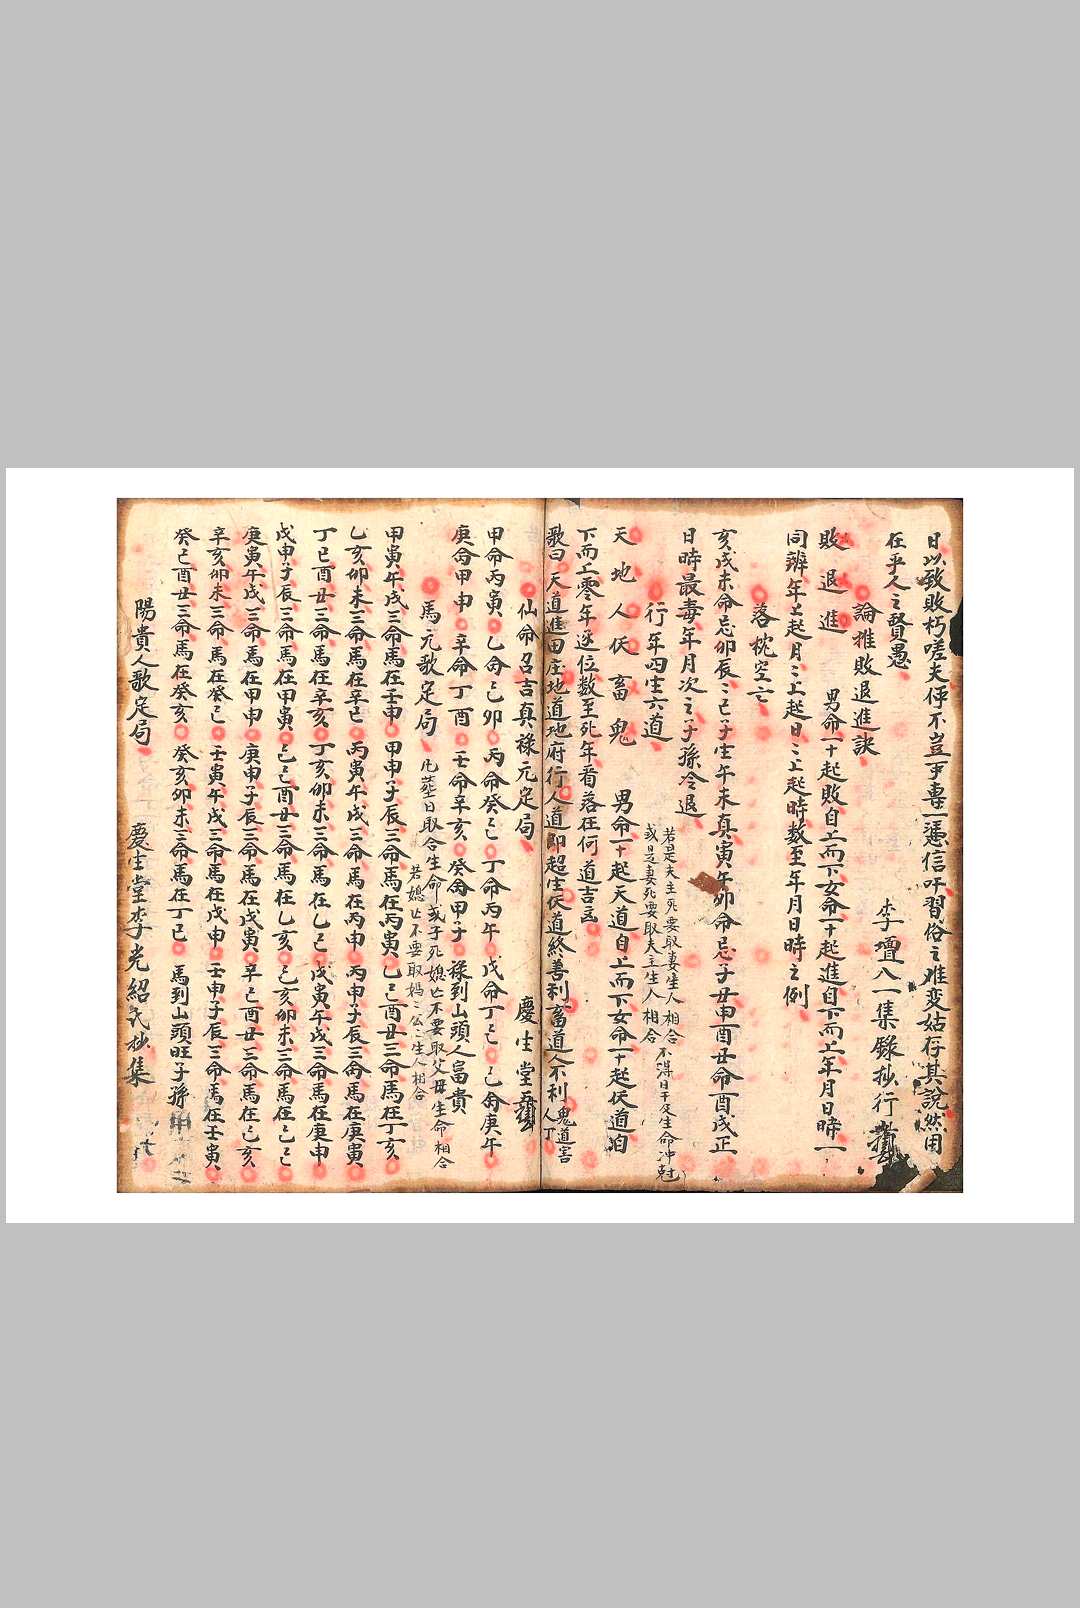 日以致敗朽嗟夫伻不豈事專一憑信吁習俗之难变姑存其說然用
在乎人之賢愚 李壇八一集錄抄行
論推敗退進訣
敗 退 進 男命一十起敗自上而下女命一十起進自下而上年月日時一
同辦年上起月月上起日日上起時数至年月日時之例
落枕空亡
亥戌未命忌卯辰辰巳子生午未真寅午卯命忌子丑申酉丑命酉戌正
日時最毒年月次之子孫冷退
若是夫主死要取妻生人相合
或是妻死要取夫主生人相合 不得日干及生命冲尅
行年四生六道
天 地 人 伏 畜 鬼 男命一十起天道自上而下女命一十起伏道泊
下而上零年逐位数至死年看落在何道吉凶
歌曰天道進田庄地道地府行人道即超生伏道終善利畜道人不利 鬼道害
人丁
仙命召吉真祿元定局 慶生堂
甲命丙寅 乙命己卯 丙命癸巳 丁命丙午 戊命丁巳 己命庚午
庚命甲申 辛命丁酉 壬命辛亥 癸命甲子 祿到山頭人富貴
馬元歌定局 凡塟日取合生命或子死媳亡不要取父母生命相合
若媳亡不要取媽媽公公生人相合
甲寅午戌三命馬在壬申 甲申子辰三命馬在丙寅 乙巳酉丑三命馬在丁亥
乙亥卯未三命馬在辛巳 丙寅午戌三命馬在丙申 丙申子辰三命馬在庚寅
丁巳酉丑三命馬在辛亥 丁亥卯未三命馬在乙巳 戊寅午戌三命馬在庚申
戊申子辰三命馬在甲寅 己巳酉丑三命馬在乙亥 己亥卯未三命馬在己巳
庚寅午戌三命馬在甲申 庚申子辰三命馬在戊寅 辛巳酉丑三命馬在己亥
辛亥卯未三命馬在癸巳 壬寅午戌三命馬在戊申 壬申子辰三命馬在壬寅
癸巳酉丑三命馬在癸亥 癸亥卯未三命馬在丁巳 馬到山頭旺子孫
陽貴人歌定局 慶生堂李光紹氏抄集